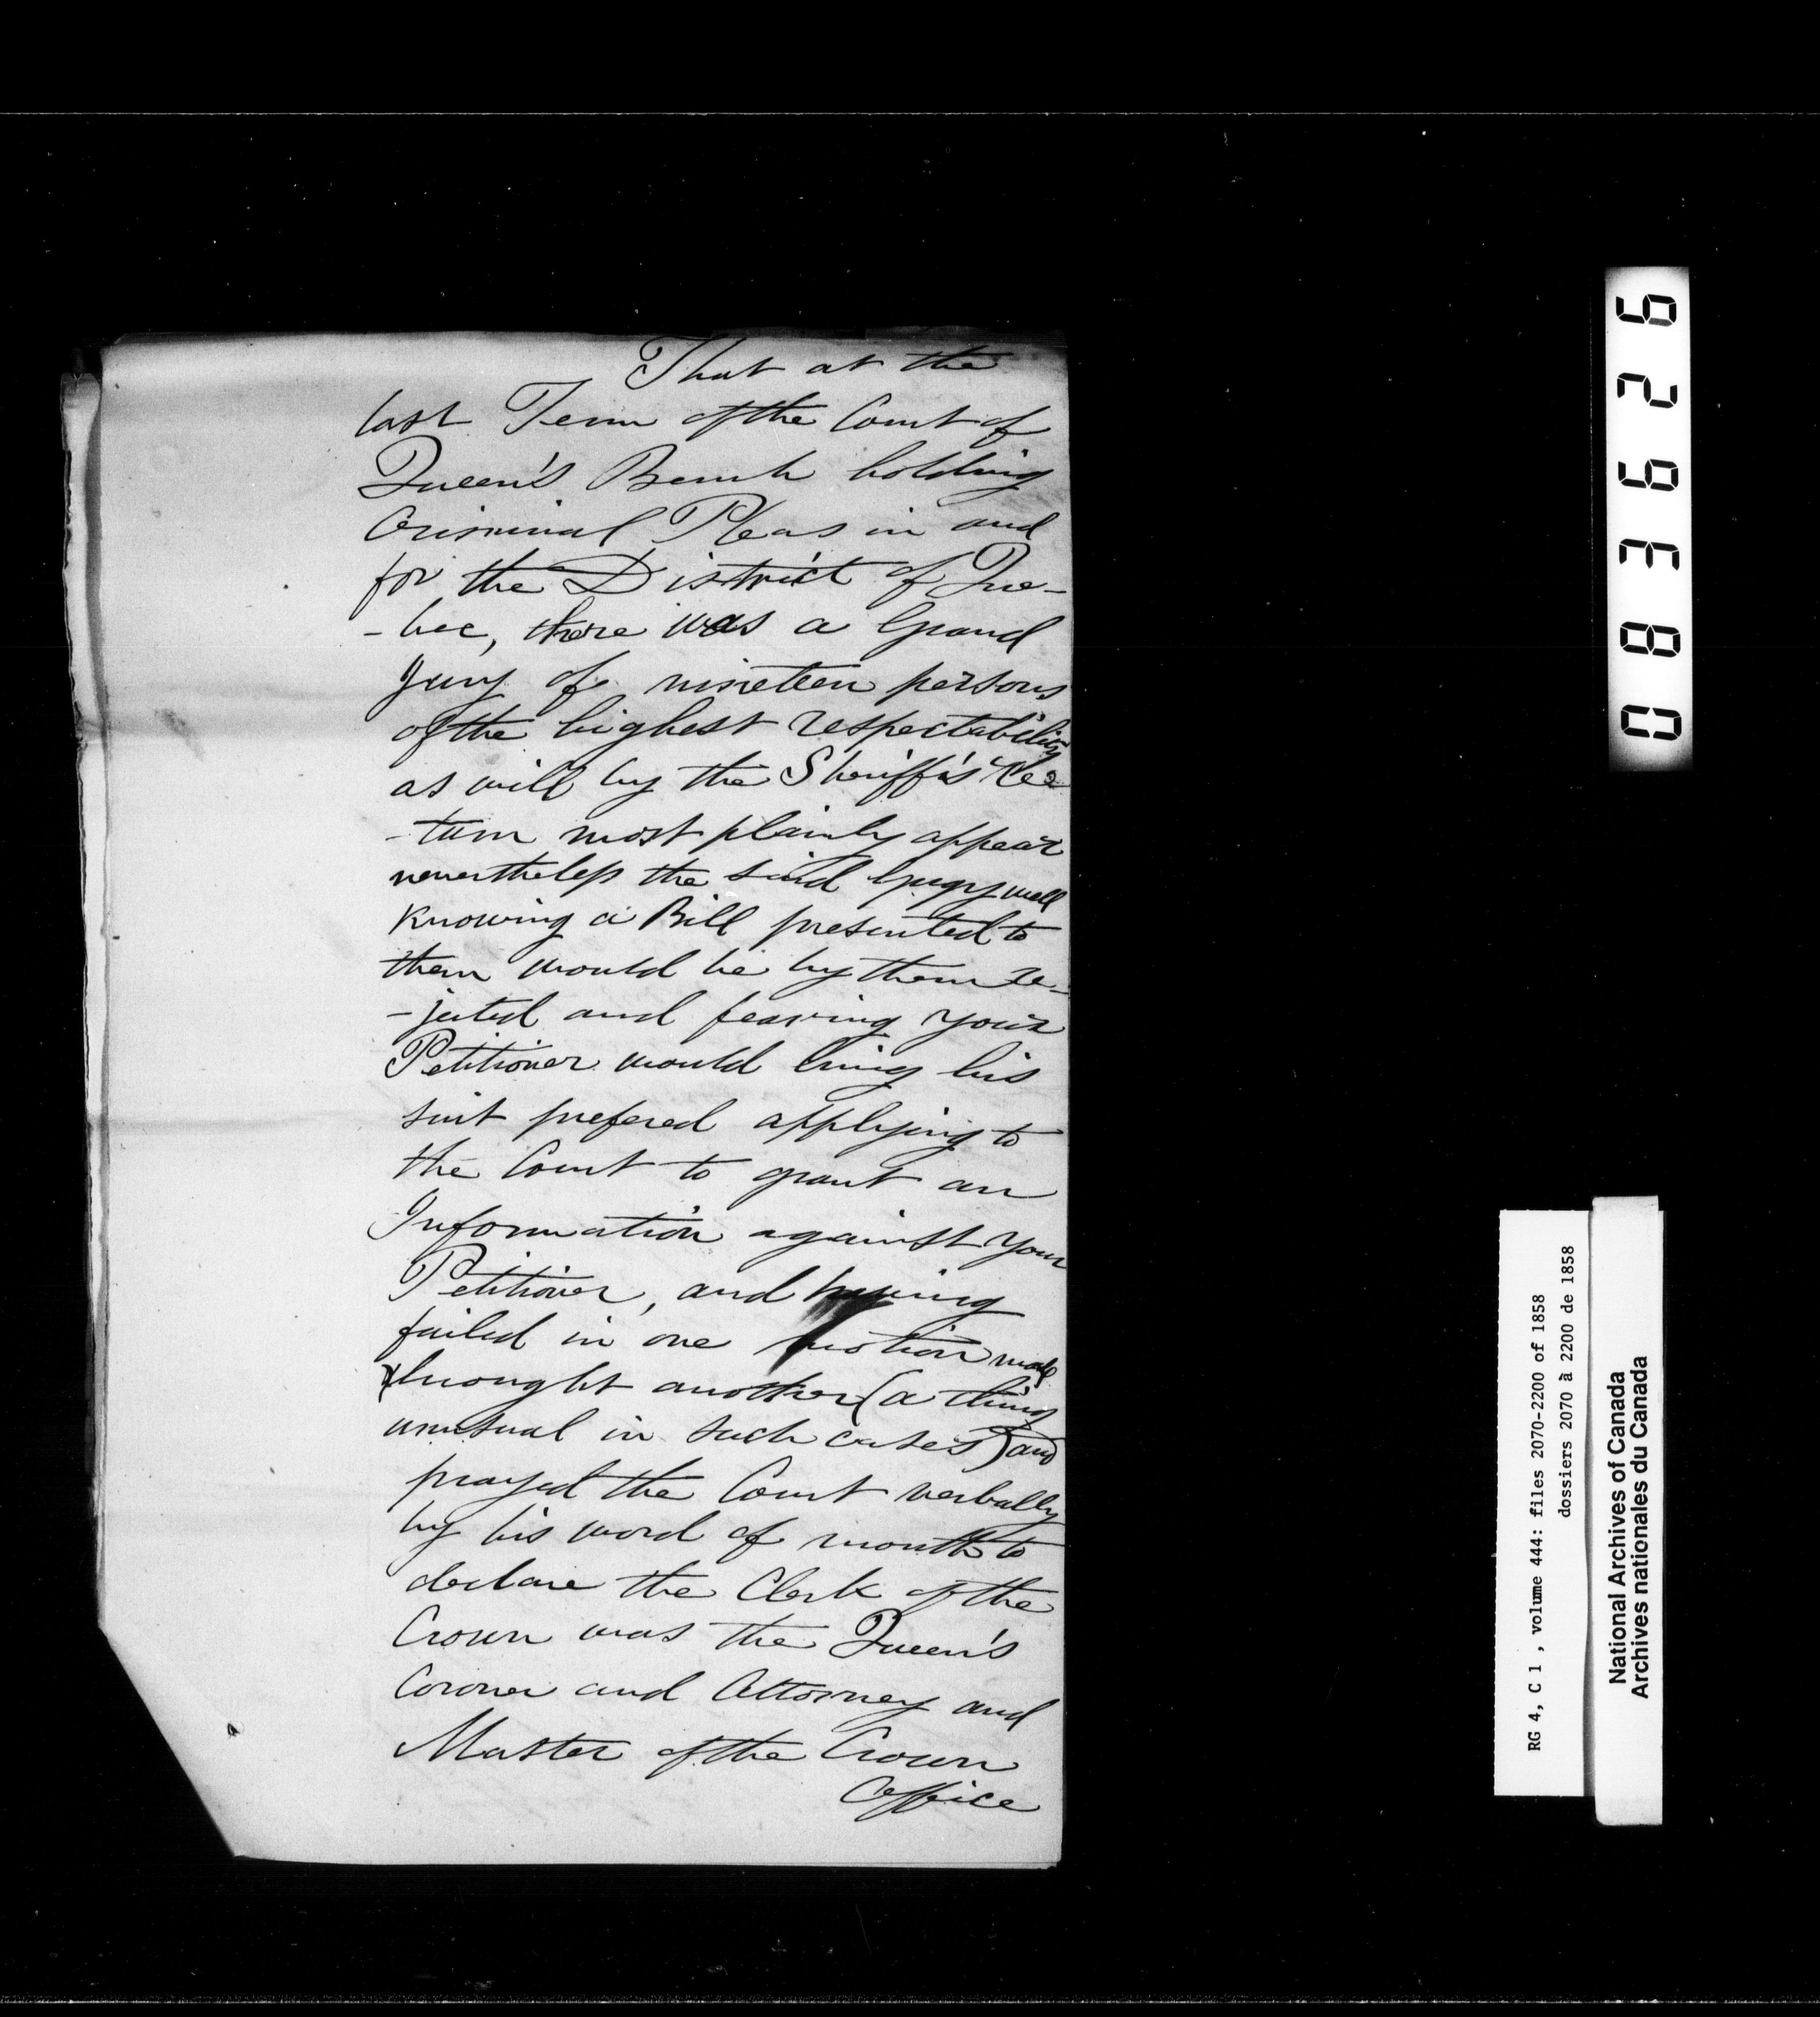 That at the
last Term of the Court of
Queen's Bench holding
Criminal Pleas in and
for the District of Que-
-bec, there was a Grand
Jury of nineteen persons
of the highest respectability
as will by the Sheriff's Re=
-turn most plainly appear
nevertheless the said Gugy well
knowing a Bill presented to
them would be by them re-
-jected and fearing your
Petitioner would bring his
suit prefered applying to
the Court to grant an
Information against your
Petitioner, and having
failed in one motion made
& brought another (a thing
unusual in such cases) and
prayed the Court verbally
by his word of mouth to
declare the Clerk of the
Crown was the Queen's
Coroner and Attorney and
Master of the Crown
Office
083626
RG 4, C 1 , volume 444: files 2070-2200 of 1858
dossiers 2070 à 2200 de 1858
National Archives of Canada
Archives nationales du Canada